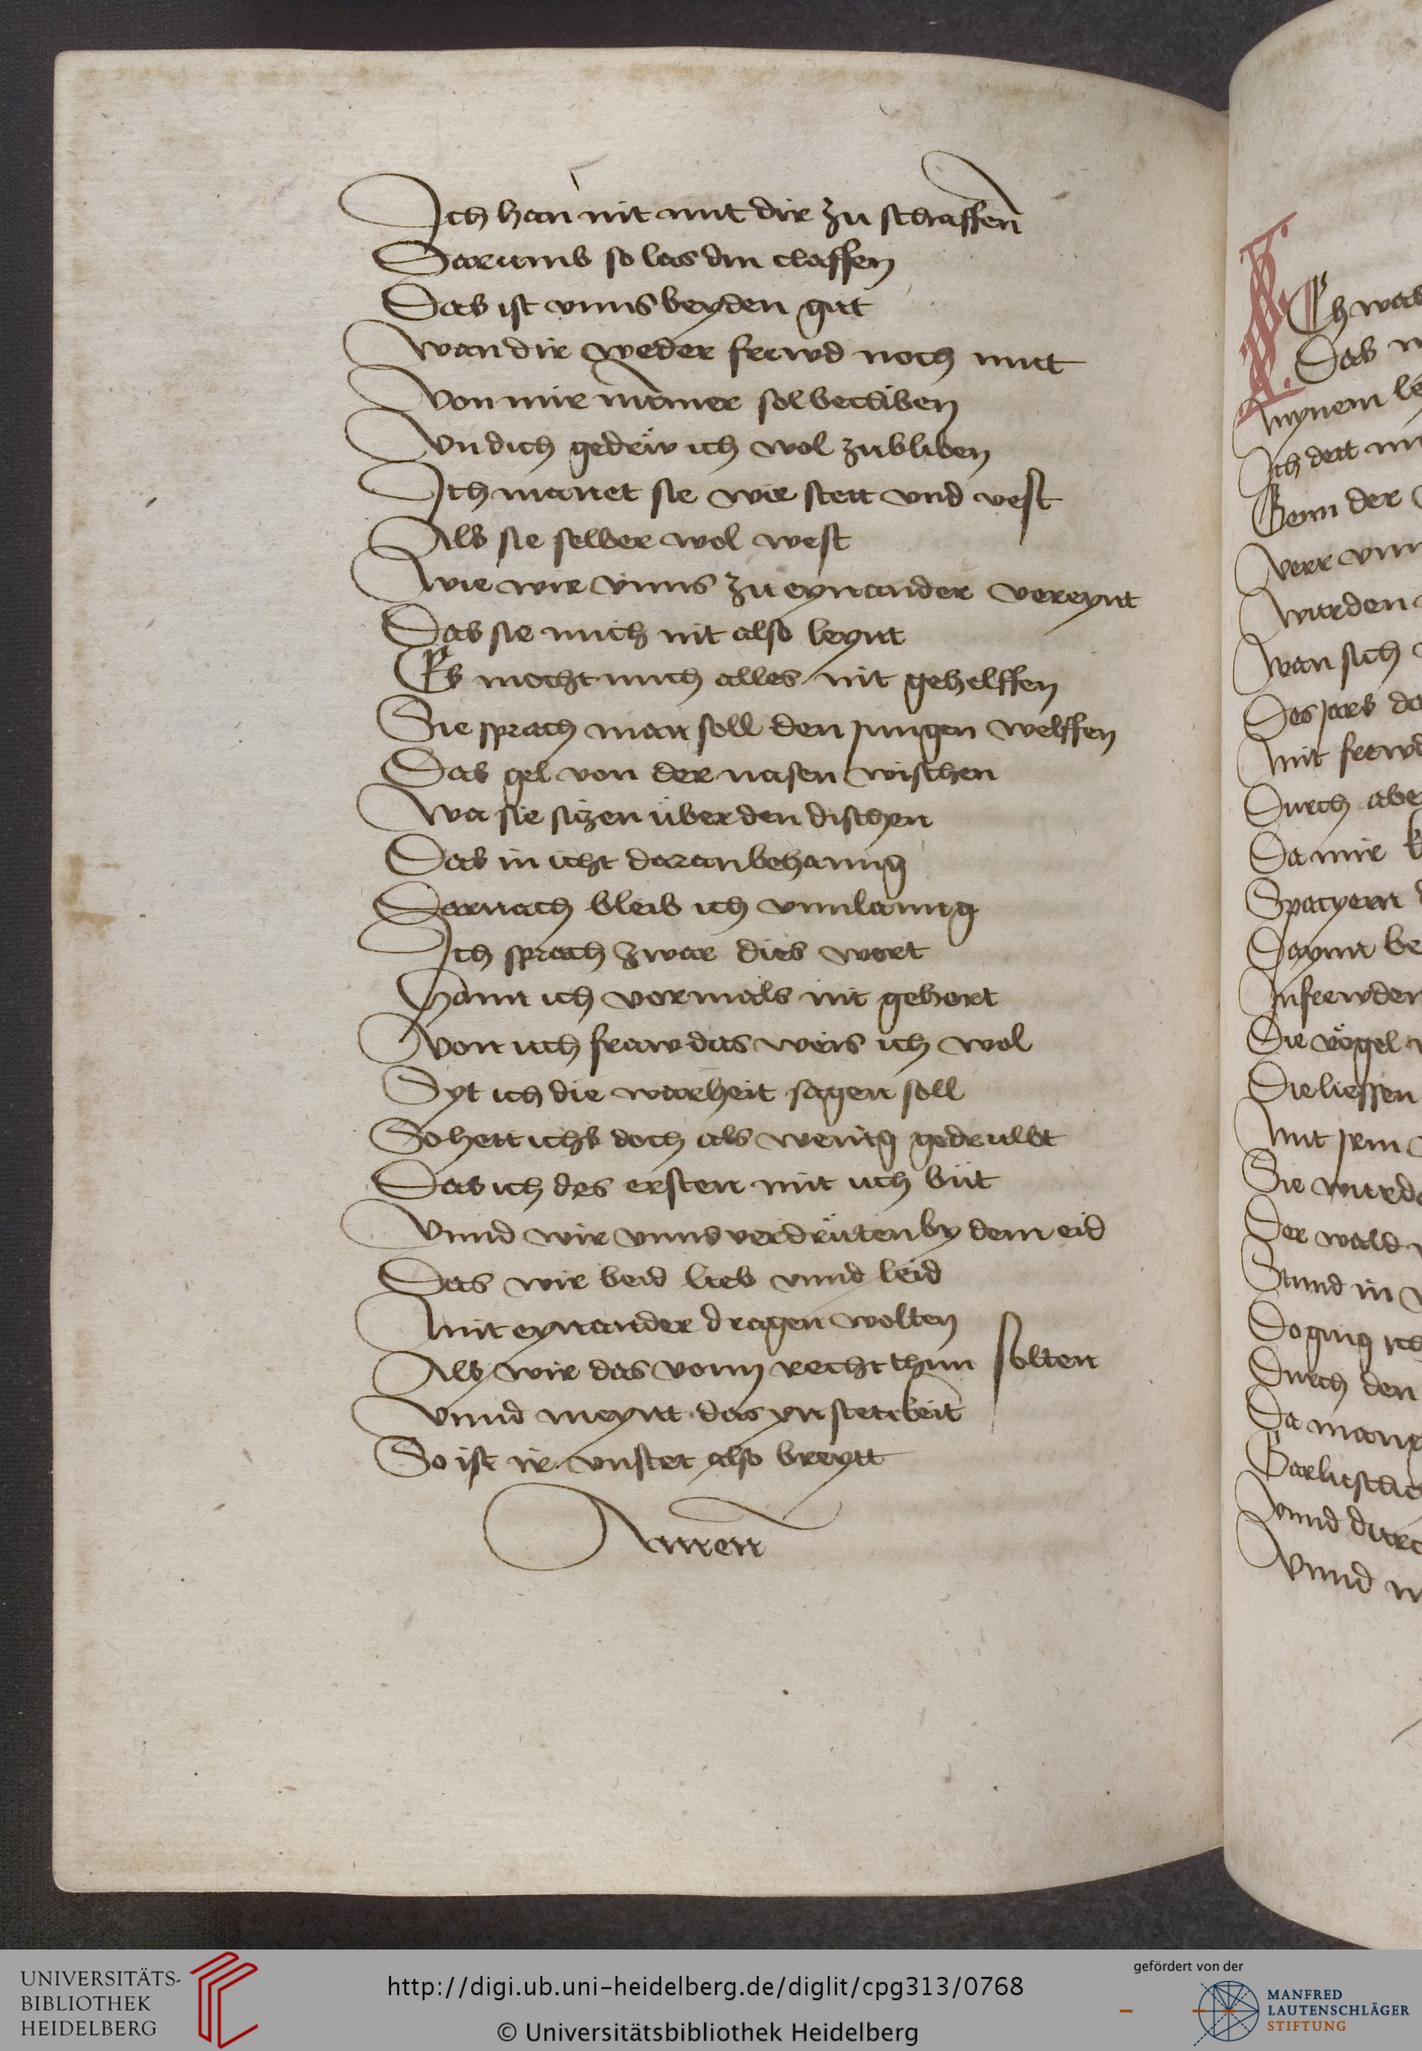 Ich han nit mit dir zu schaffen
Darumb so las din claffen
Das ist vnns beyden gut
Wan dir weder frewd noch mut
Von mir nÿmer sol becliben
Vn dich gedruw ich wol zubliben
Ich manet sie wie stett vnd vest
Als sie selber wol west
Wie wir vnns zu eynander vereynt
Das sie mich nit also leynt
Es mocht mich alles nit gehelffen
Sie sprach man soll den jungen welffen
Das gel von der nasen wischen
Wa sie sizen über den dischen
Das in icht daran behanng
Darnach bleib ich vnnlanng
Ich sprach zwar dies wort
Hann ich vormals nit gehort
Von uch fraw das weis ich wol
Syt ich die warheit sagen soll
So hett ichs doch als wenig gedrubt
Das ich des ersten mit uch
Vnnd wir vnns verdrüten by dem eid
Das wir beid lieb vnnd leid
Mit eynander dragen wolten
Als wir das vonn recht thun solten
Vnnd meynt das yn stettkeit
So ist ir vnstet also breytt
Amen
Eh was
Das
Mynem
Ich dett
Genn der
Verr vnn
Wurden
Wan sich
Des jars
Mit frewd
Durch
Da mir
Spacyern
Da
In frewden
Die vögel
Die liessen
Mit jrm
Sie wurde
Der wald
Stund in
Do ging ich
Durch den
Da
Vnnd
Vnnd
UNIVERSITÄTS-
BIBLIOTHEK
HEIDELBERG
http://digi.ub.uni-heidelberg.de/diglit/cpg313/0768
© Universitätsbibliothek Heidelberg
gefördert von der
MANFRED
LAUTENSCHLÄGER
STIFTUNG